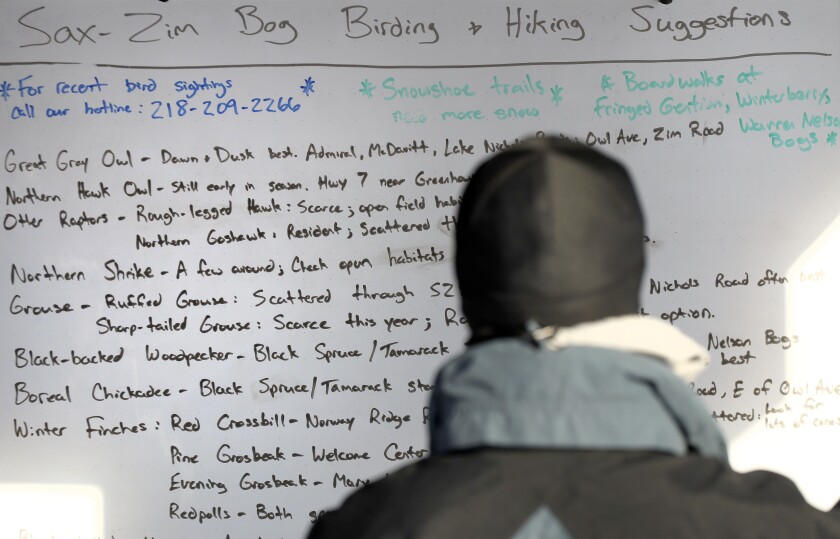 Sax-Zim Bog Birding + Hiking Suggestions
* For recent bird sightings *
call our hotline: 218-209-2266
* Snowshoe trails *
need more snow
* Boardwalks at
Fringed Gentian, Winterberry
Warren Nelson
Bogs *
Great Gray Owl - Dawn + Dusk best. Admiral, McDavitt, Lake Nichols Owl Ave, Zim Road
Northern Hawk Owl - Still early in season. Hwy 7 near
Other Raptors - Rough-legged Hawk: Scarce; open field
Northern Goshawk: Resident; Scattered
Northern Shrike - A few around; Check open habitats
Grouse - Ruffed Grouse: Scattered through SZ Nichols Road often best
Sharp-tailed Grouse: Scarce this year; option.
Black-backed Woodpecker - Black Spruce/Tamarack Nelson Bogs
best
Boreal Chickadee - Black Spruce/Tamarack E of Owl Ave
Winter Finches: Red Crossbill - Norway Ridge look for
lots of cones
Pine Grosbeak - Welcome Center
Evening Grosbeak -
Redpolls - Both